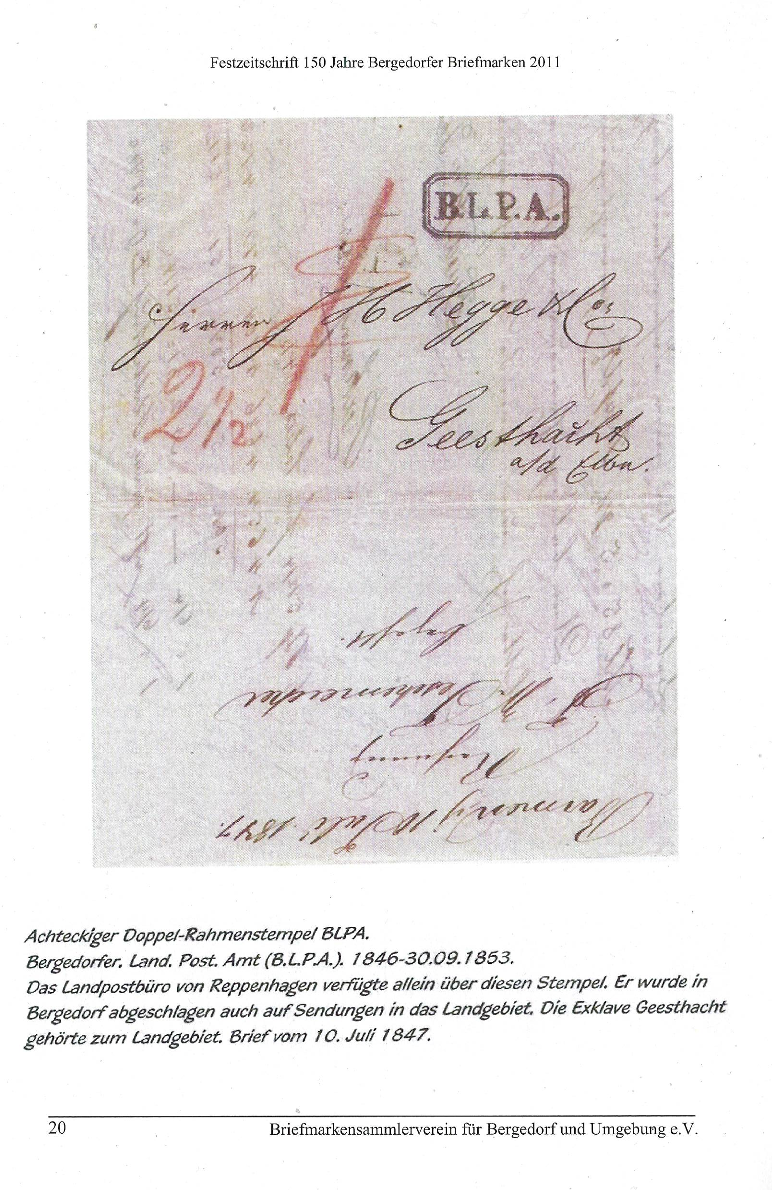 Festzeitschrift 150 Jahre Bergedorfer Briefmarken 2011
B.L.P.A.
Herren J H Hegge & Co:
2 1/2
Geesthacht
a/d Elbe.
Barmen, 10 Juli 1847.
Achteckiger Doppel-Rahmenstempel BLPA.
Bergedorfer. Land. Post. Amt (B.L.P.A.). 1846-30.09.1853.
Das Landpostbüro von Reppenhagen verfügte allein über diesen Stempel. Er wurde in
Bergedorf abgeschlagen auch auf Sendungen in das Landgebiet. Die Exklave Geesthacht
gehörte zum Landgebiet. Brief vom 10. Juli 1847.
20 Briefmarkensammlerverein für Bergedorf und Umgebung e.V.